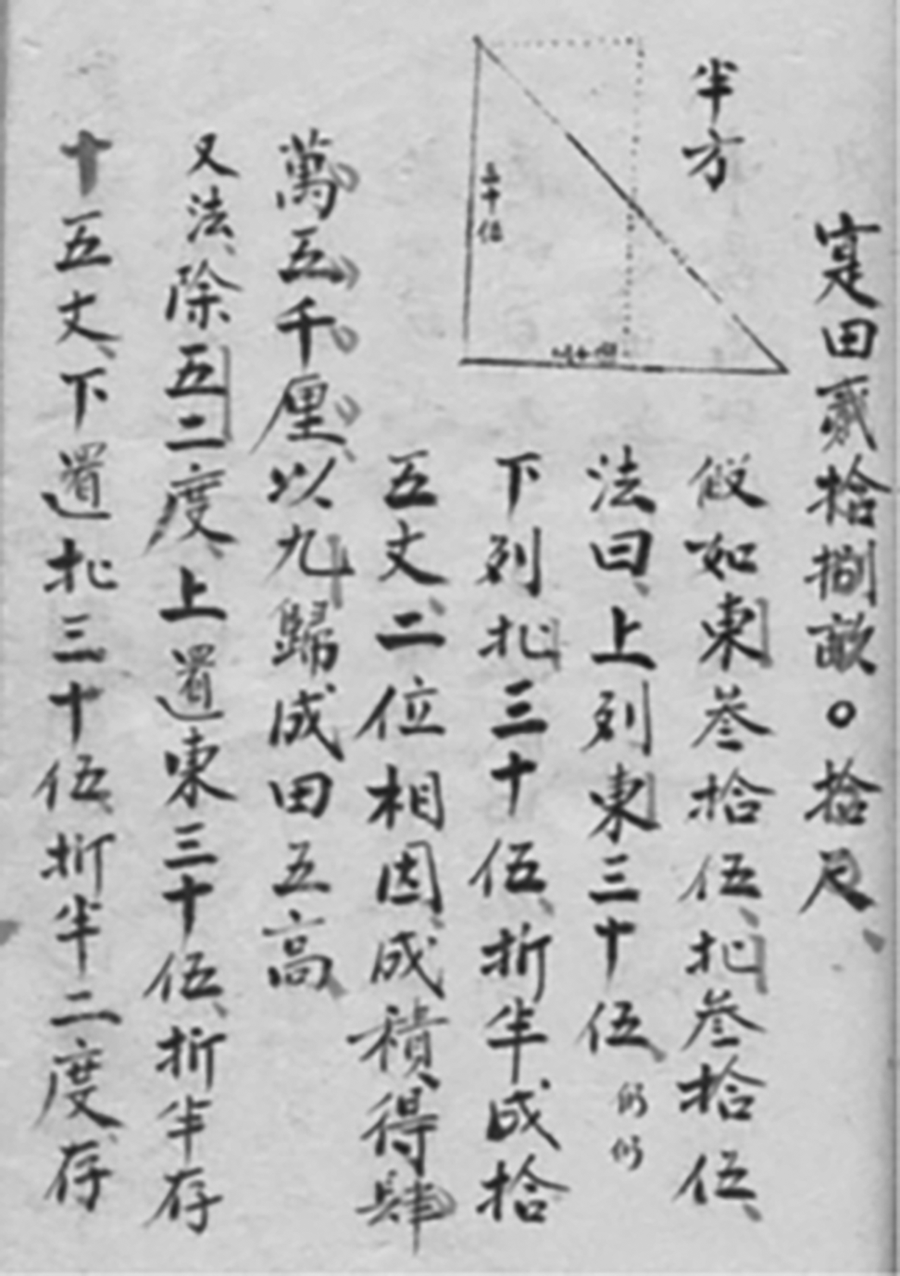 寔田貳拾捌畝〇拾尺
半方
五十伍
假如東叁拾伍北叁拾伍
法曰上列東三十伍
下列北三十伍折半成拾
五丈二位相因成積得肆
萬五千厘以九歸成田五高
又法除五二度上置東三十伍折半存
十五丈下置北三十伍折半二度存